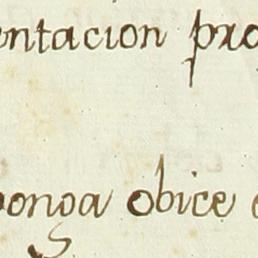 entacion pro
ponga obice